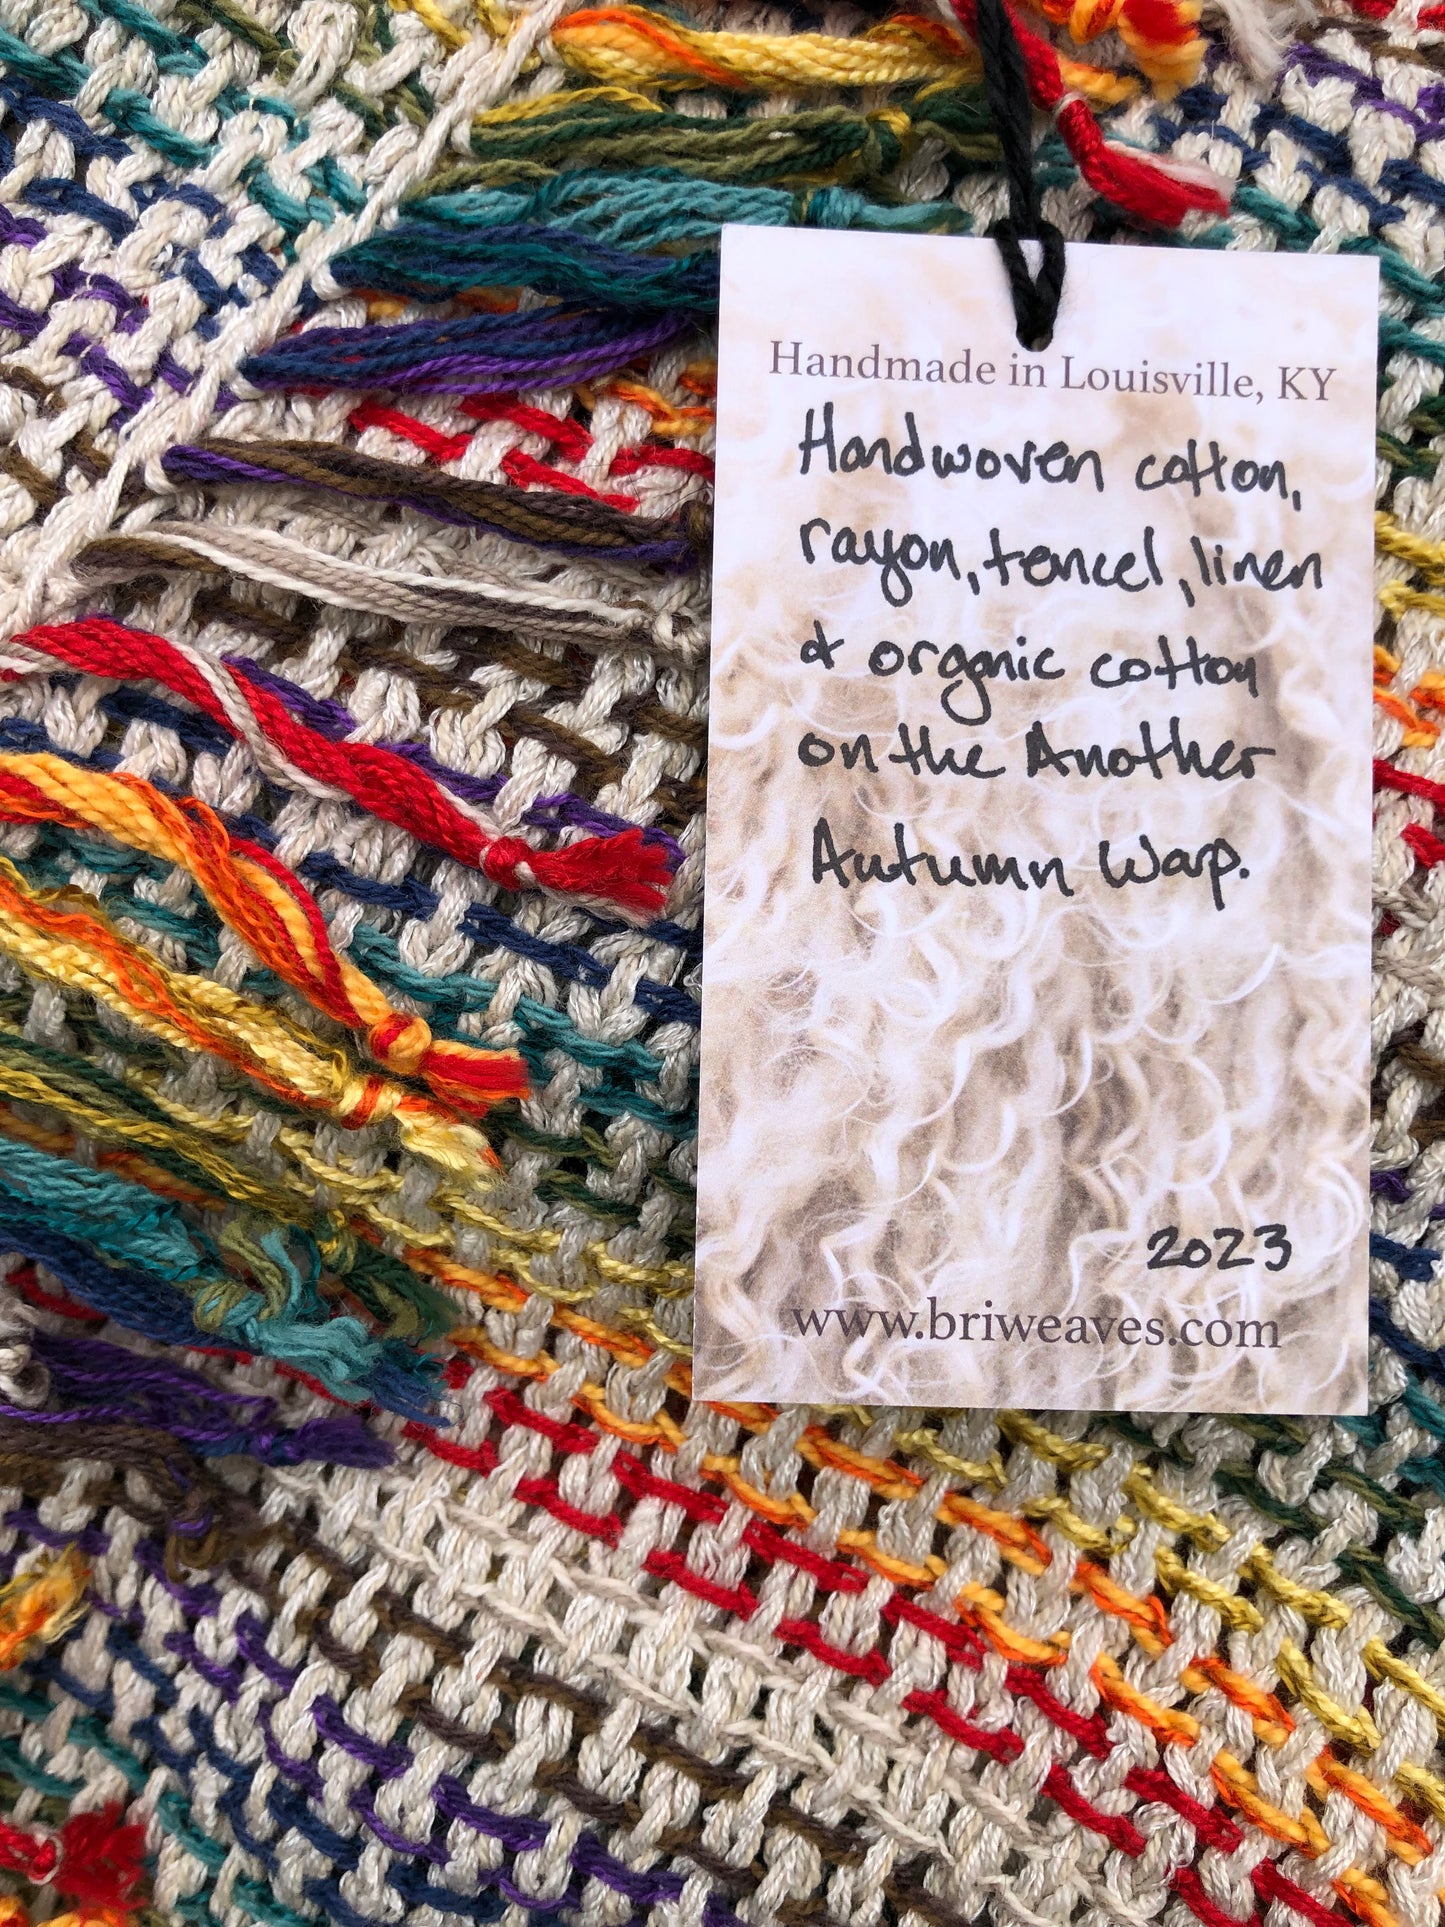 Handmade in Louisville, KY
Handwoven cotton,
rayon, tencel, linen
& organic cotton
on the Another
Autumn Warp.
2023
www.briweaves.com